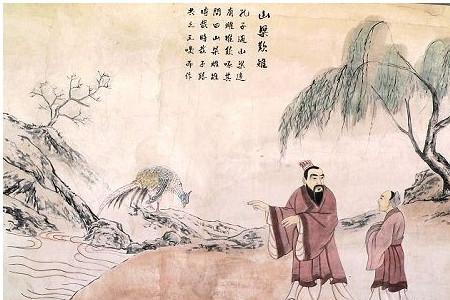 山梁歎雉
孔子過山梁
有雌雉飲啄其
間曰山梁雌雉
時哉時哉子路
共之三嗅而作